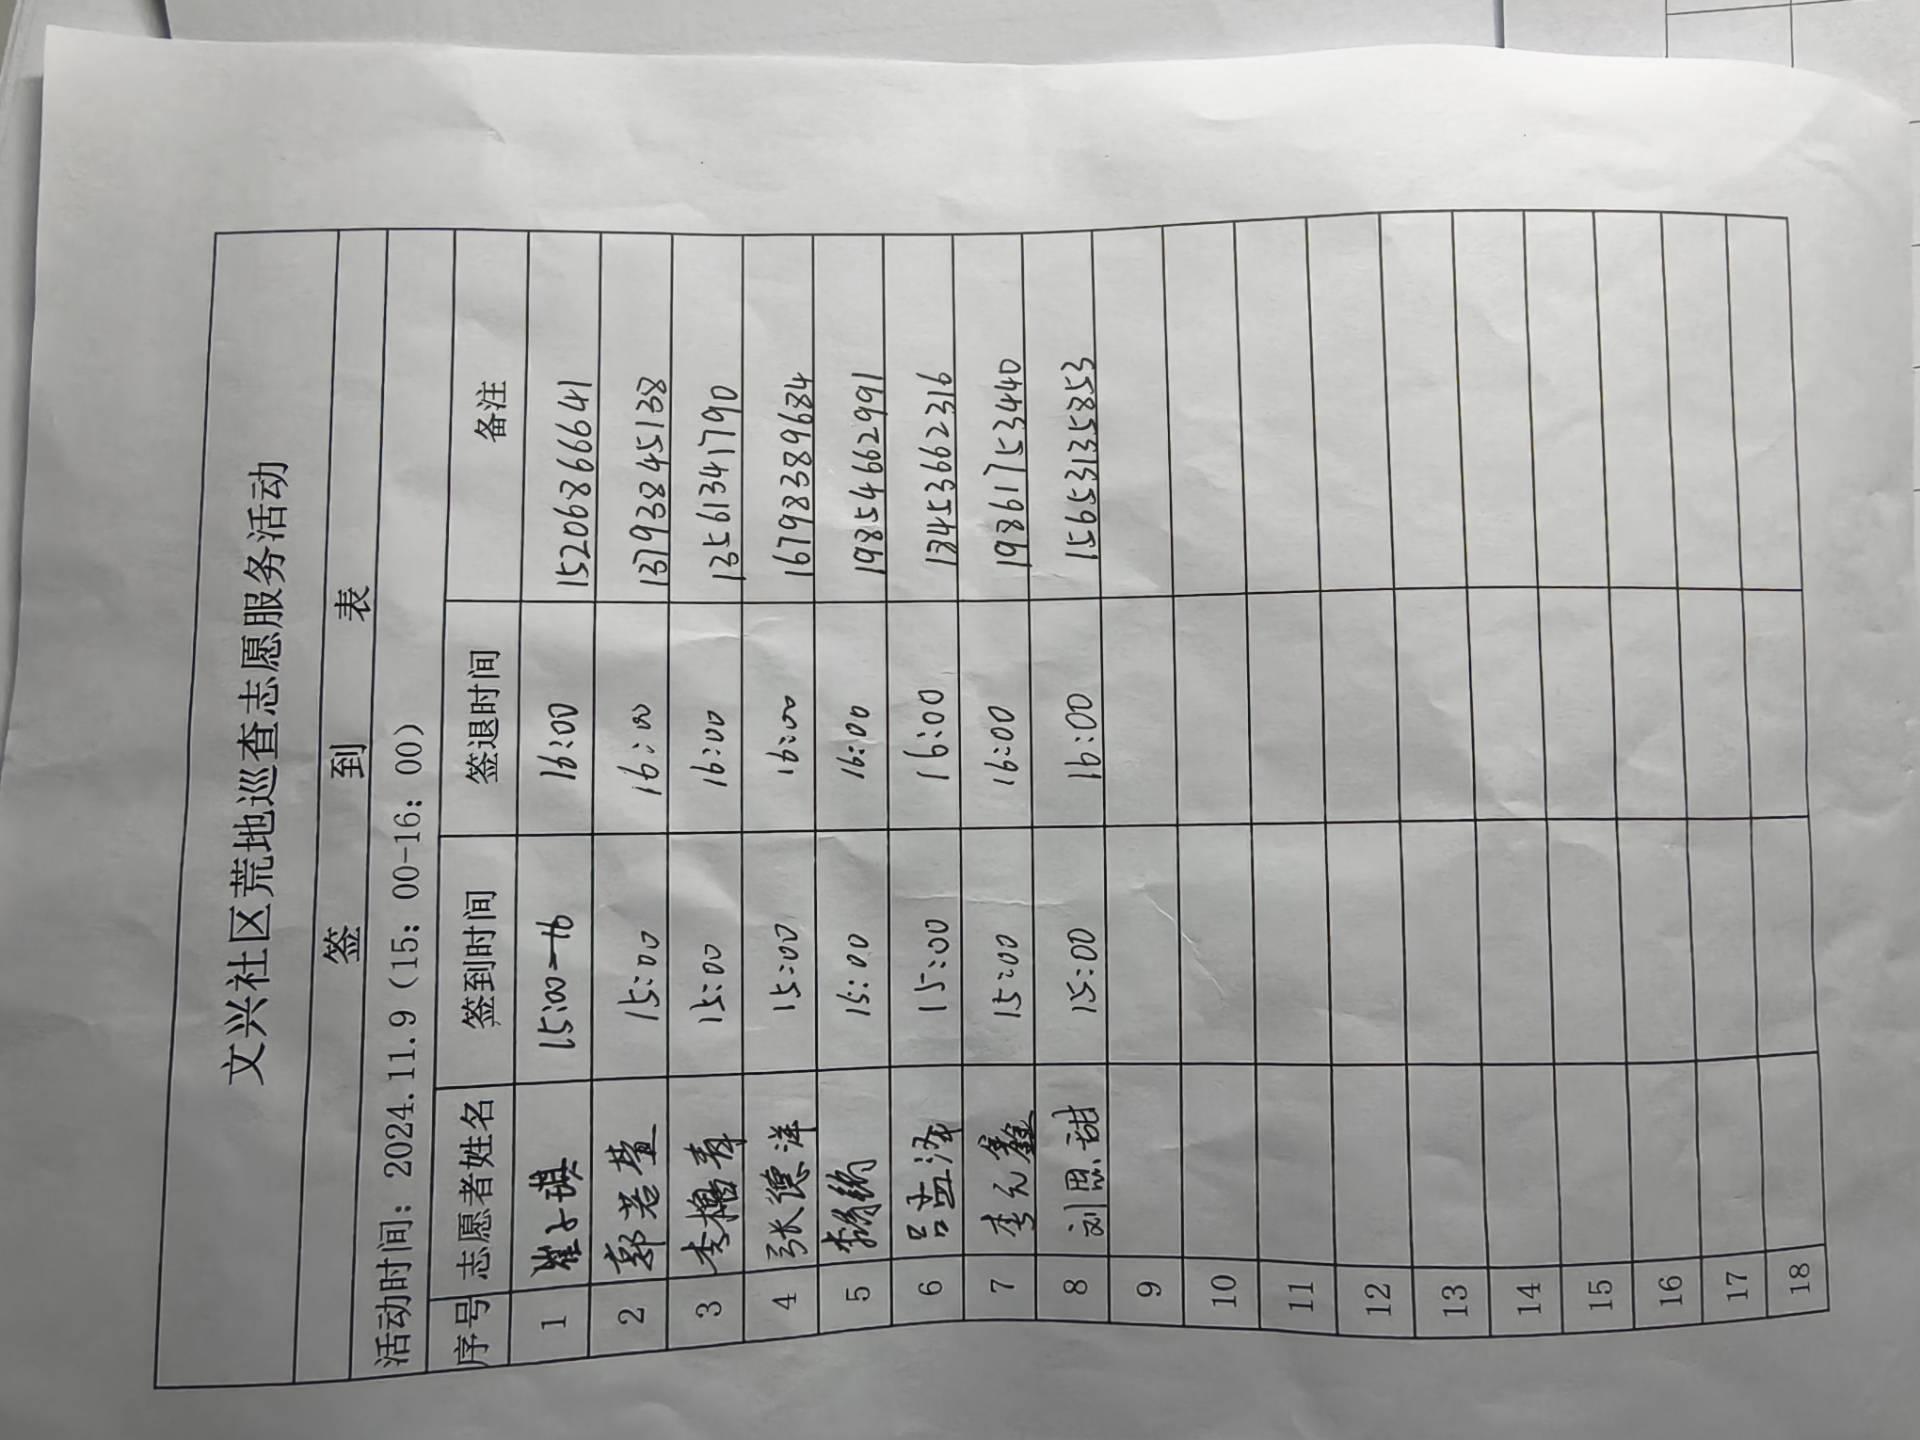 文兴社区荒地巡查志愿服务活动
签 到 表
活动时间：2024.11.9（15：00-16：00）
序号 志愿者姓名 签到时间 签退时间 备注
1 崔子琪 15:00-16 16:00 15206866641
2 郭若萱 15:00 16:00 13793845138
3 李 15:00 16:00 13561341790
4 张德洋 15:00 16:00 16798389684
5 15:00 16:00 19854662991
6 吕孟泽 15:00 16:00 13453662316
7 李元鑫 15:00 16:00 19861753440
8 刘思甜 15:00 16:00 15653135853
9
10
11
12
13
14
15
16
17
18